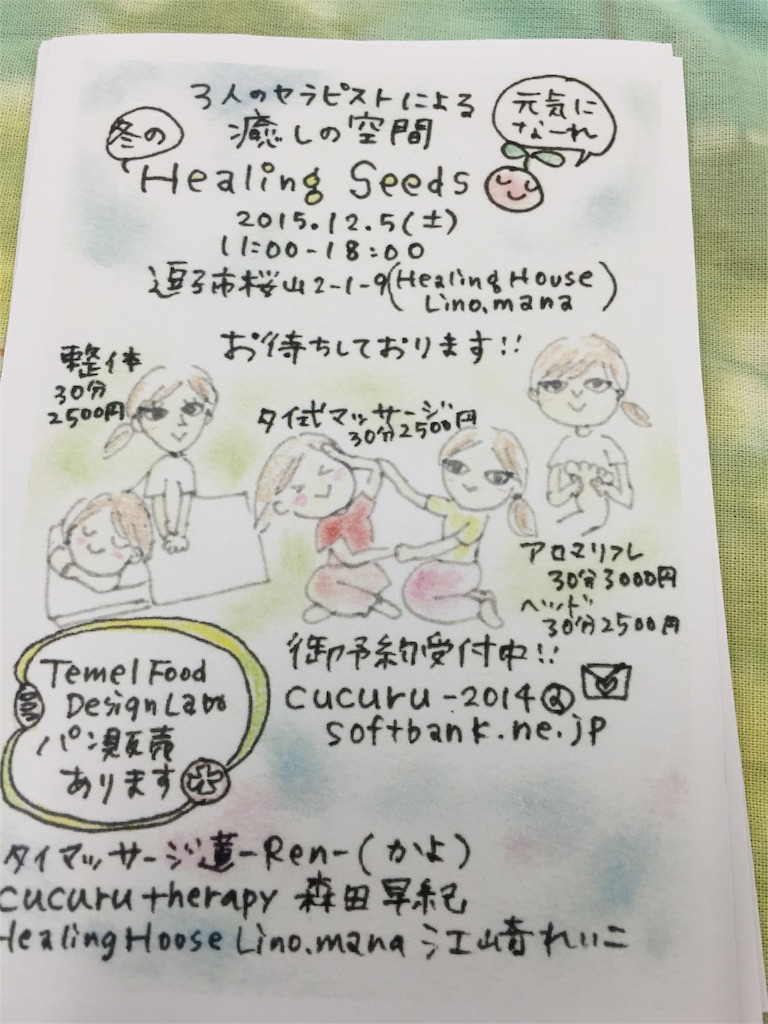 3人のセラピストによる
癒しの空間
冬の
元気に
なーれ
Healing Seeds
2015.12.5(土)
11:00-18:00
逗子市桜山2-1-9(Healing House
Lino.mana)
お待ちしております!!
整体
30分
2500円
タイ式マッサージ
30分2500円
アロマリフレ
30分3000円
ヘッド
30分2500円
御予約受付中!!
cucuru-2014@
softbank.ne.jp
Temel Food
Design Labo
パン販売
あります
タイマッサージ蓮-Ren-(かよ)
cucuru therapy 森田早紀
Healing Hoose Lino.mana 江崎れいこ